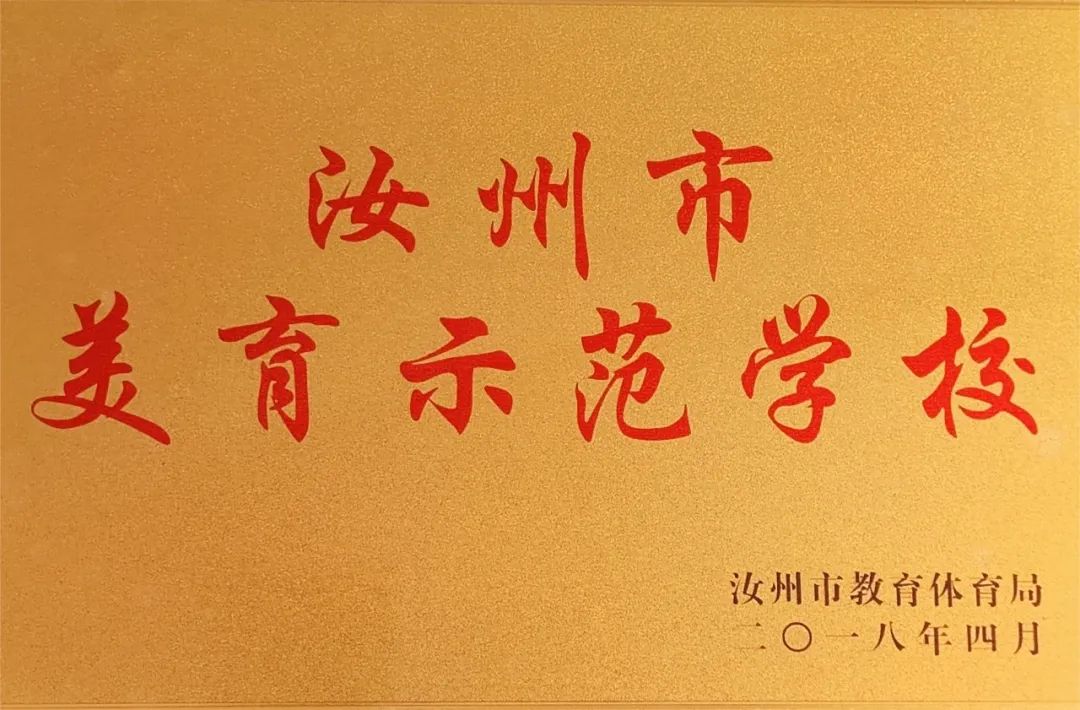 汝州市
美育示范学校
汝州市教育体育局
二〇一八年四月